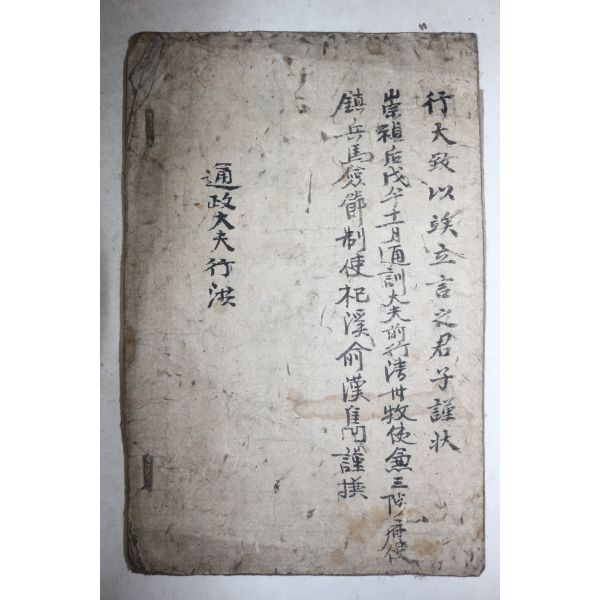 行大致以竢立言之君子謹狀
崇禎后戊午十一月通訓大夫前行淸州牧使兼三陟府使
鎭兵馬僉節制使杞溪兪漢雋謹撰
通政大夫行洪